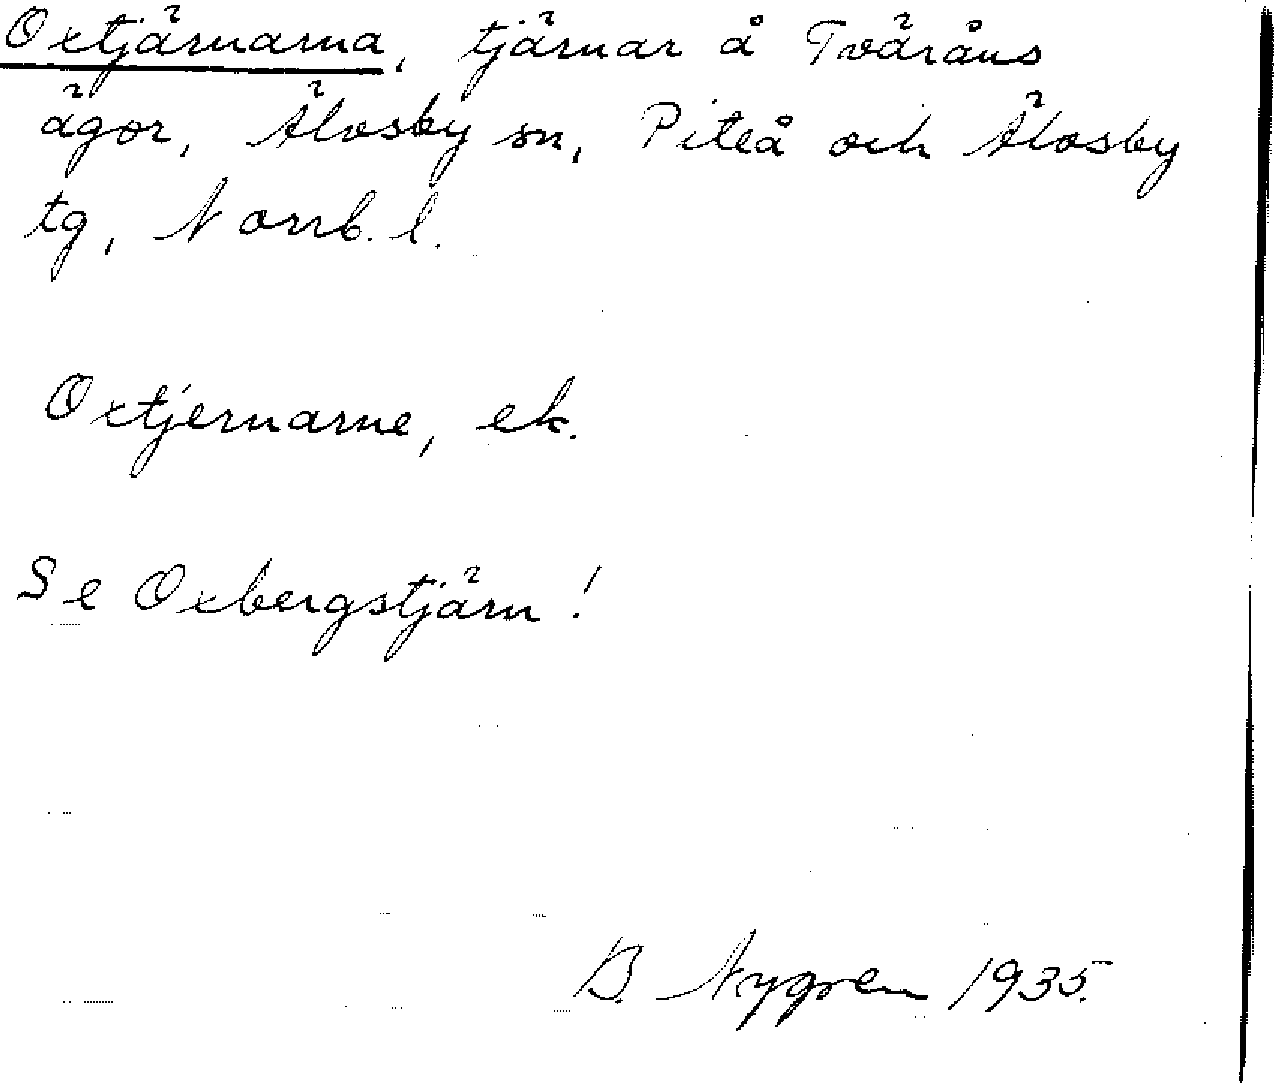 Oxtjärnarna, tjärnar å Tväråns
ägor, Älvsby sn, Piteå och Älvsby
tg, Norrb. l.
Oxtjernarne, ek.
Se Oxbergstjärn!
B. Nygren 1935.